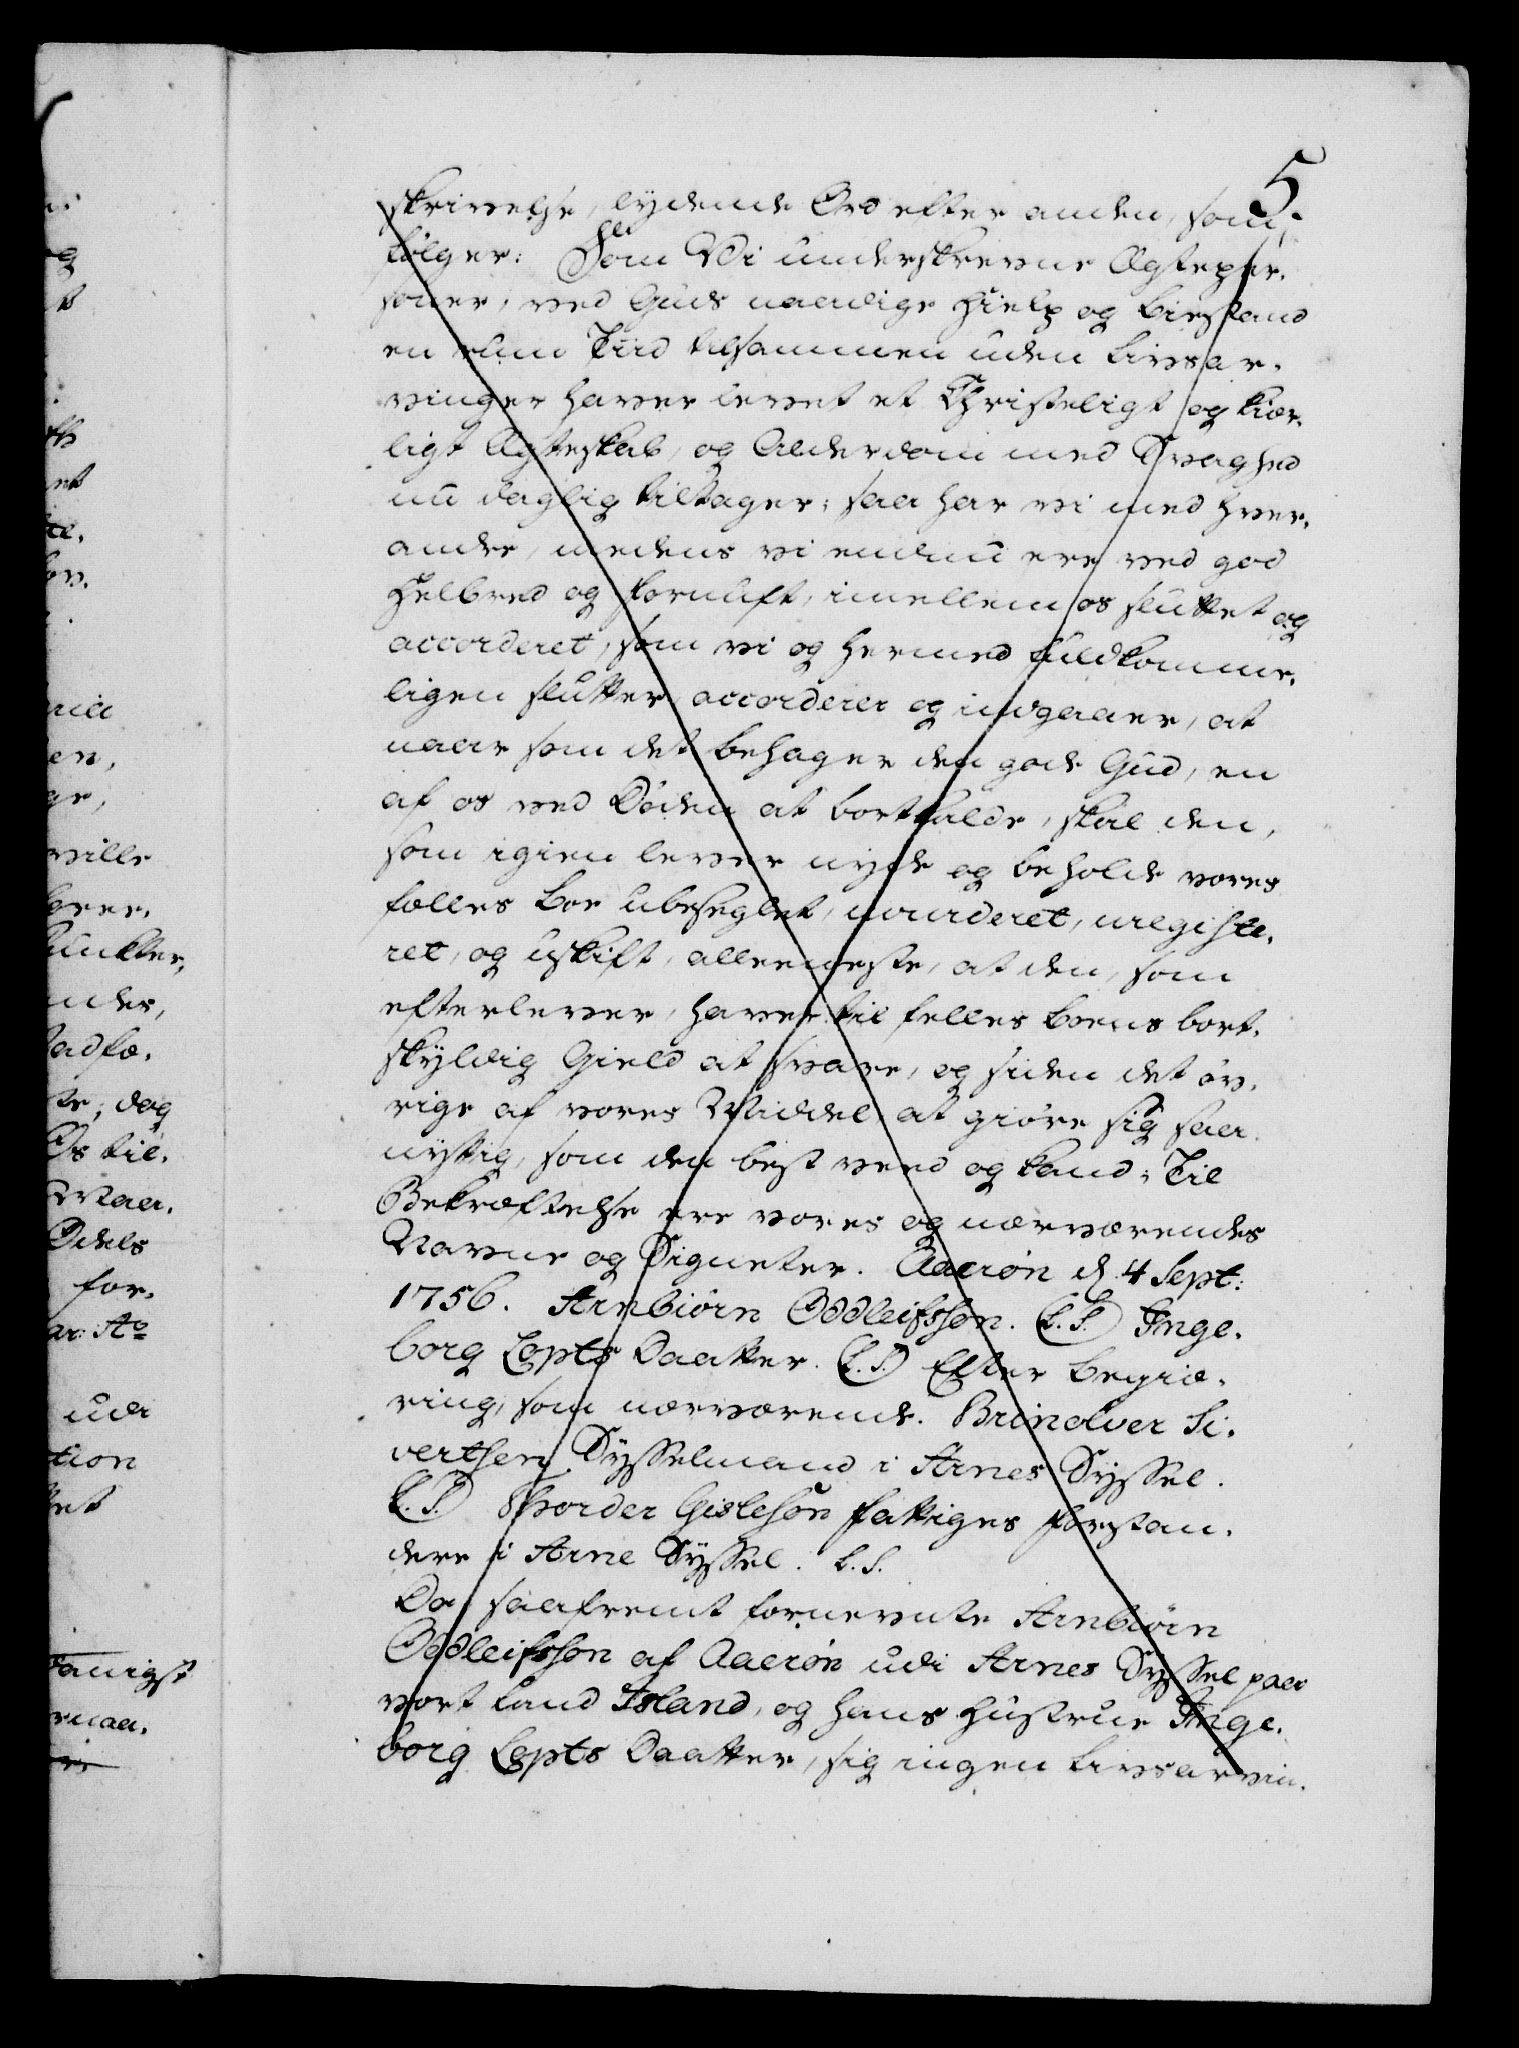 5
skrivelse, lydende Ord efter anden, som
følger: Som Vi underskrevne Ægteper-
soner, ved Guds naadige Hielp og Biestand
en Tiid tilsammen uden Livsar-
vinger haver levet et Christeligt og kiær-
ligt Ægteskab, og Alderdom med Svaghed
nu daglig tiltager; saa har vi med hver-
andre, medens vi endnu ere ved god
Helbred og Fornuft, imellem os sluttet og
accorderet, som vi og hermed fuldkomme-
ligen slutter, accorderer og indgaaer, at
naar som det behager den gode Gud, en
af os ved Døden at bortkalde, skal den,
som igien lever nyde og beholde vores
fælles Boe ubeseglet, uvurderet, uregiste-
ret, og uskift, alleeneste, at den, som
efterlever, haver til felles Boens bort-
skyldig Gield at svare, og siden det øv-
rige af vores Middel at giøre sig saa
nyttig, som den best veed og kand; Til
Bekræftelse ere vores og nærværendes
Navne og Signeter. Aaerön d. 4 Sept:
1756. Arnbiörn Oddleifsson. (L.S.) Inge-
borg Lopts Daatter. (L.S.) Efter Begiæ-
ring, som nærværende. Brinolver Si-
vertsen Sysselmand i Arnes Syssel.
(L.S.) Thorder Gislesön Fattiges Forstan-
dere i Arne Syssel. L.S.
Da saafremt fornevnte Arnbiörn
Oddleifsson af Aaerön udi Arnes Syssel paa
vort Land Island, og hans Hustrue Inge-
borg Lopts Daatter, sig ingen Livsarvin-
ville
Puncter,
dog
Os til.
Odels
for-
udi
tion